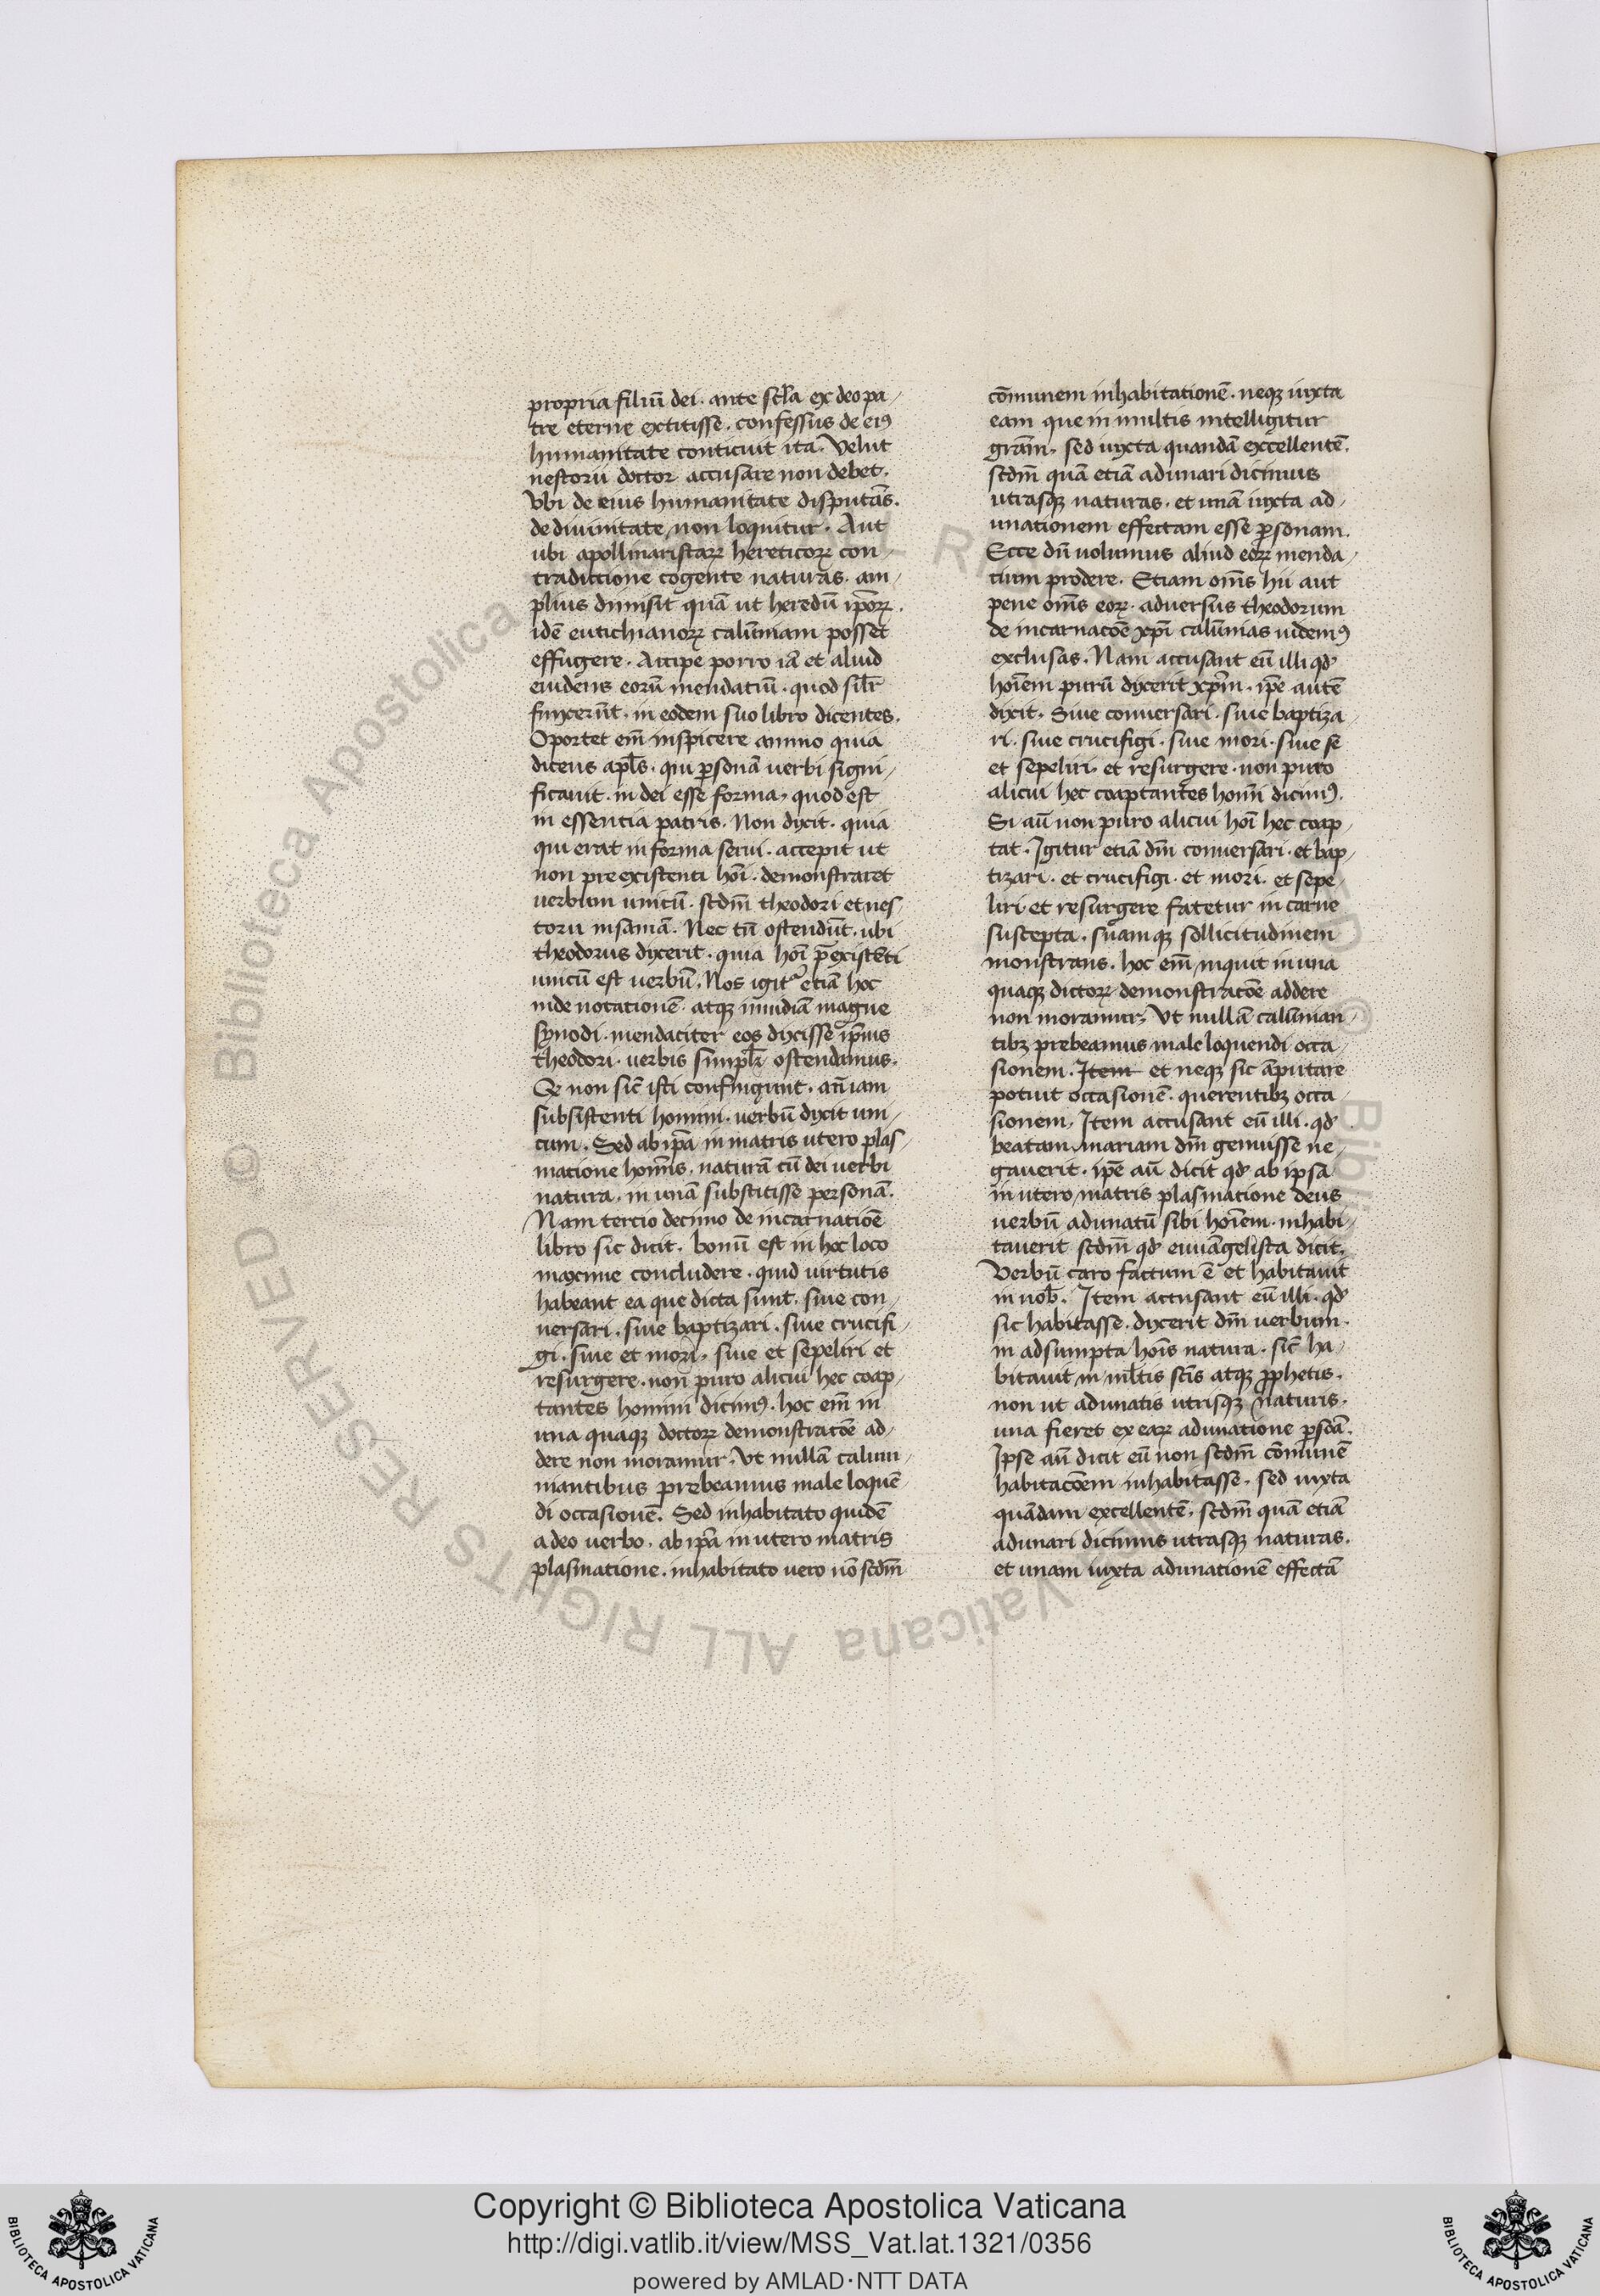 propria filiū dei . ante sc̄la ex deo pa-
tre eterne extitisse . confessus de eiꝰ
humanitate conticuit ita . Velut
nestorii doctor accusare non debet .
Vbi de eius humanitate disputās .
de diuinitate non loquitur . Aut
ubi apollinaristaꝝ hereticoꝝ con-
tradictione cogente naturas . am-
plius diuisit quā ut heredū ip̄oꝝ .
idē eutichianoꝝ calūniam posset
effugere . Accipe porro iā et aliud
euidens eorū mendatiū . quod sil̄r
finxerūt . in eodem suo libro dicentes .
Oportet em̄ inspicere animo quia
dicens apl̄s . qui ꝑsonā uerbi signi-
ficauit . in dei esse forma , quod est
in essentia patris . Non dixit . quia
qui erat in forma serui . accepit ut
non preexistenti hoı̄ . demonstraret
uerbum unitū . scdm̄ theodori et nes-
torii insaniā . Nec tn̄ ostendūt . ubi
theodorus dixerit . quia hoı̄ p̄existēti
unitū est uerbū . Nos igitᷣ etiā hoc
inde notationē . atqꝫ inuidiā magne
synodi . mendaciter eos dixisse ip̄ius
theodori . uerbis simplr̄ ostendamus .
Qꝛ non sic̄ isti confingunt . an̄ iam
subsistenti homini . uerbū dixit uni-
tum . Sed ab ip̄a in matris utero plas-
matione hom̄is . naturā cū dei uerbi
natura . in unā substitisse personā .
Nam tercio decimo de incarnatiōe
libro sic dicit . bonū est in hoc loco
maxime concludere . quid uirtutis
habeant ea que dicta sunt . siue con-
uersari . siue baptizari . siue crucifi-
gi . siue et mori , siue et sepeliri et
resurgere . non puro alicui hec coap-
tantes homini dicimꝰ . hoc em̄ in
una quaqꝫ doctoꝝ demonstratōe ad-
dere non moramur . Vt nullā calum-
niantibus prebeamus male loquē-
di occasionē . Sed inhabitato quidē
a deo uerbo . ab ip̄a in utero matris
plasmatione . inhabitato uero nō scdm̄
cōmunem inhabitationē . neqꝫ iuxta
eam que in multis intelligitur
grām . sed iuxta quandā excellentē .
scdm̄ quā etiā adunari dicimus
utrasqꝫ naturas . et unā iuxta ad-
unationem effectam esse ꝑsonam .
Ecce dū uolumus aliud eoꝝ menda-
tium prodere . Etiam om̄s hii aut
pene om̄s eoꝝ . aduersus theodorum
de incarnatōe xp̄i calūnias uidemꝰ
exclusas . Nam accusant eū illi qd̄
hoı̄em purū dixerit xp̄m . ip̄e autē
dixit . Siue conuersari . siue baptiza-
ri . siue crucifigi . siue mori . siue se
et sepeliri . et resurgere . non puro
alicui hec coaptantes homı̄ dicimꝰ .
Si au̅ non puro alicui hoı̄ hec coap-
tat . Igitur etiā dm̄ conuersari . et bap-
tizari . et crucifigi . et mori . et sepe-
liri et resurgere fatetur in carne
suscepta . suamqꝫ sollicitudinem
monstrans . hoc em̄ inquit in una
quaqꝫ dictoꝝ demonstratōe addere
non moramur . Vt nullā calūnian-
tibꝫ prebeamus male loquendi occa-
sionem . Item et neqꝫ sic āputare
potuit occasionē . querentibꝫ occa-
sionem . Item accusant eū illi . qd̄
beatam mariam dm̄ genuisse ne-
gauerit . ip̄e au̅ dicit qd̄ ab ipsa
in utero matris plasmatione deus
uerbū adunatū sibi hoı̄em . inhabi-
tauerit scdm̄ qd̄ euuāgelista dicit .
Verbū caro factum ē et habitauit
in nob̄ . Item accusant eū illi . qd̄
sic habitasse . dixerit dm̄ uerbum .
in adsumpta hoı̄s natura . sic̄ ha-
bitauit in ml̄tis sc̄is atqꝫ ꝓphetis .
non ut adunatis utrisqꝫ naturis .
una fieret ex eaꝝ adunatione ꝑsōa .
Ipse au̅ dicit eū non scdm̄ cōmunē
habitatōem inhabitasse . sed iuxta
quādam excellentē . scdm̄ quā etiā
adunari dicimus utrasqꝫ naturas .
et unam iuxta adunationē effectā
Copyright © Biblioteca Apostolica Vaticana
http://digi.vatlib.it/view/MSS_Vat.lat.1321/0356
powered by AMLAD·NTT DATA
BIBLIOTECA APOSTOLICA VATICANA
BIBLIOTECA APOSTOLICA VATICANA
© Biblioteca Apostolica Vaticana ALL RIGHTS RESERVED